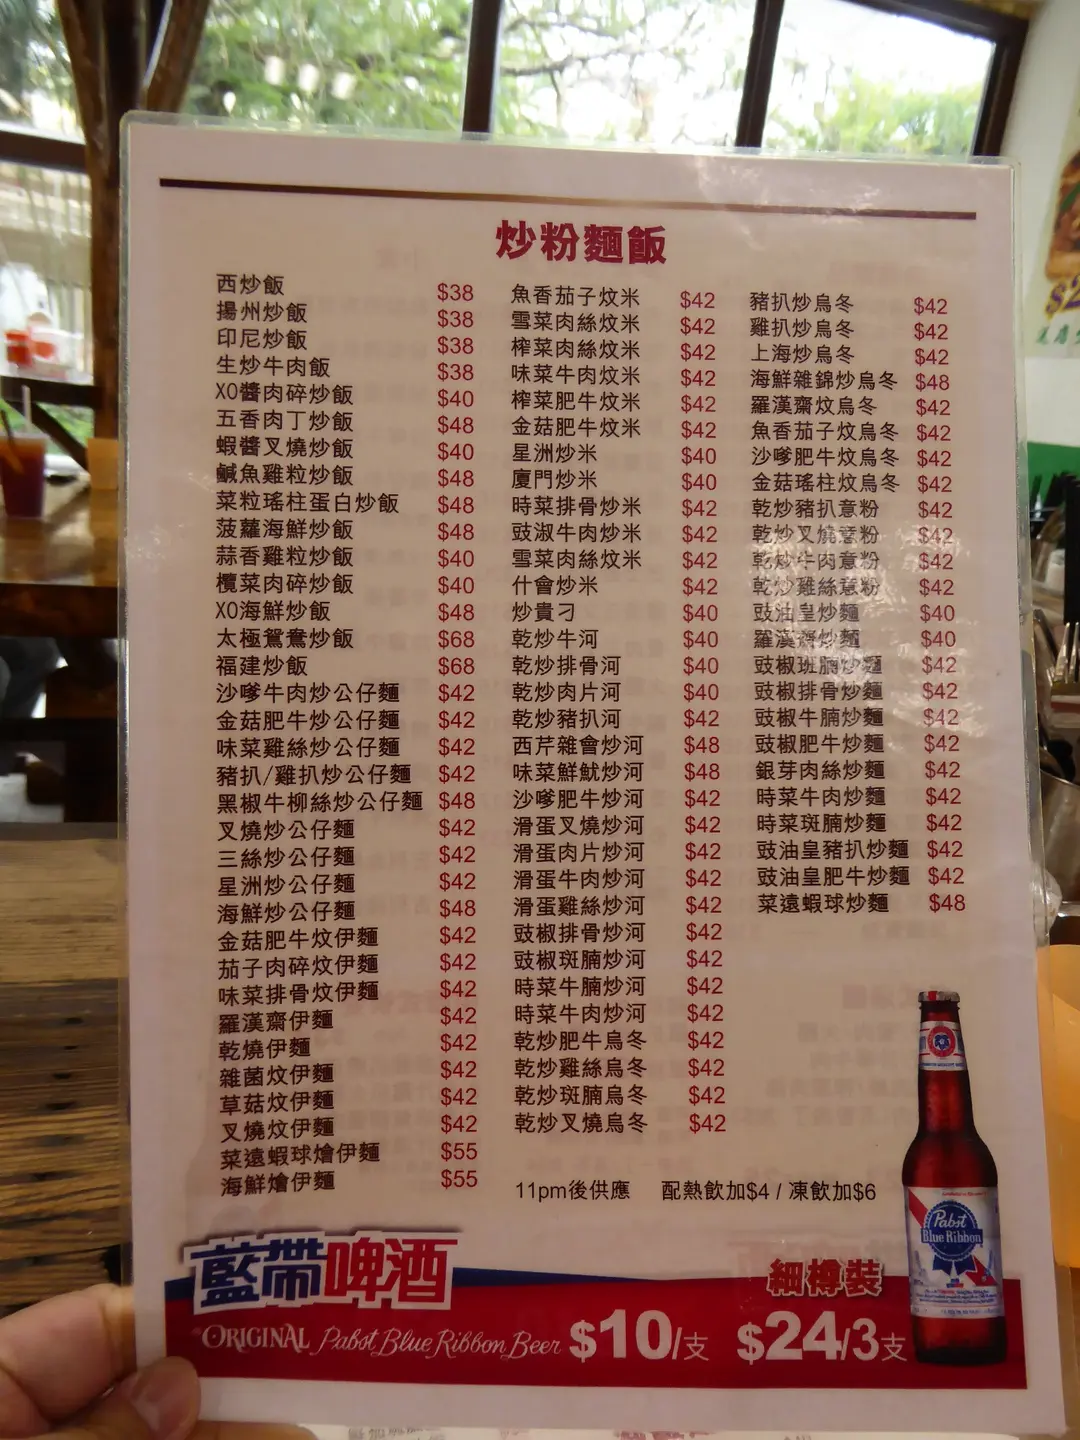 炒粉麵飯
西炒飯 $38
揚州炒飯 $38
印尼炒飯 $38
生炒牛肉飯 $38
XO醬肉碎炒飯 $40
五香肉丁炒飯 $48
蝦醬叉燒炒飯 $40
鹹魚雞粒炒飯 $48
菜粒瑤柱蛋白炒飯 $48
菠蘿海鮮炒飯 $48
蒜香雞粒炒飯 $40
欖菜肉碎炒飯 $40
XO海鮮炒飯 $48
太極鴛鴦炒飯 $68
福建炒飯 $68
沙嗲牛肉炒公仔麵 $42
金菇肥牛炒公仔麵 $42
味菜雞絲炒公仔麵 $42
豬扒/雞扒炒公仔麵 $42
黑椒牛柳絲炒公仔麵 $48
叉燒炒公仔麵 $42
三絲炒公仔麵 $42
星洲炒公仔麵 $42
海鮮炒公仔麵 $48
金菇肥牛炆伊麵 $42
茄子肉碎炆伊麵 $42
味菜排骨炆伊麵 $42
羅漢齋伊麵 $42
乾燒伊麵 $42
雜菌炆伊麵 $42
草菇炆伊麵 $42
叉燒炆伊麵 $42
菜遠蝦球燴伊麵 $55
海鮮燴伊麵 $55
魚香茄子炆米 $42
雪菜肉絲炆米 $42
榨菜肉絲炆米 $42
味菜牛肉炆米 $42
榨菜肥牛炆米 $42
金菇肥牛炆米 $42
星洲炒米 $40
廈門炒米 $40
時菜排骨炒米 $42
豉淑牛肉炒米 $42
雪菜肉絲炆米 $42
什會炒米 $42
炒貴刁 $40
乾炒牛河 $40
乾炒排骨河 $40
乾炒肉片河 $40
乾炒豬扒河 $42
西芹雜會炒河 $48
味菜鮮魷炒河 $48
沙嗲肥牛炒河 $42
滑蛋叉燒炒河 $42
滑蛋肉片炒河 $42
滑蛋牛肉炒河 $42
滑蛋雞絲炒河 $42
豉椒排骨炒河 $42
豉椒斑腩炒河 $42
時菜牛腩炒河 $42
時菜牛肉炒河 $42
乾炒肥牛烏冬 $42
乾炒雞絲烏冬 $42
乾炒斑腩烏冬 $42
乾炒叉燒烏冬 $42
豬扒炒烏冬 $42
雞扒炒烏冬 $42
上海炒烏冬 $42
海鮮雜錦炒烏冬 $48
羅漢齋炆烏冬 $42
魚香茄子炆烏冬 $42
沙嗲肥牛炆烏冬 $42
金菇瑤柱炆烏冬 $42
乾炒豬扒意粉 $42
乾炒叉燒意粉 $42
乾炒牛肉意粉 $42
乾炒雞絲意粉 $42
豉油皇炒麵 $40
羅漢齋炒麵 $40
豉椒班腩炒麵 $42
豉椒排骨炒麵 $42
豉椒牛腩炒麵 $42
豉椒肥牛炒麵 $42
銀芽肉絲炒麵 $42
時菜牛肉炒麵 $42
時菜斑腩炒麵 $42
豉油皇豬扒炒麵 $42
豉油皇肥牛炒麵 $42
菜遠蝦球炒麵 $48
11pm後供應 配熱飲加$4 / 凍飲加$6
藍帶啤酒
細樽裝
ORIGINAL Pabst Blue Ribbon Beer $10/支 $24/3支
Pabst
Blue Ribbon